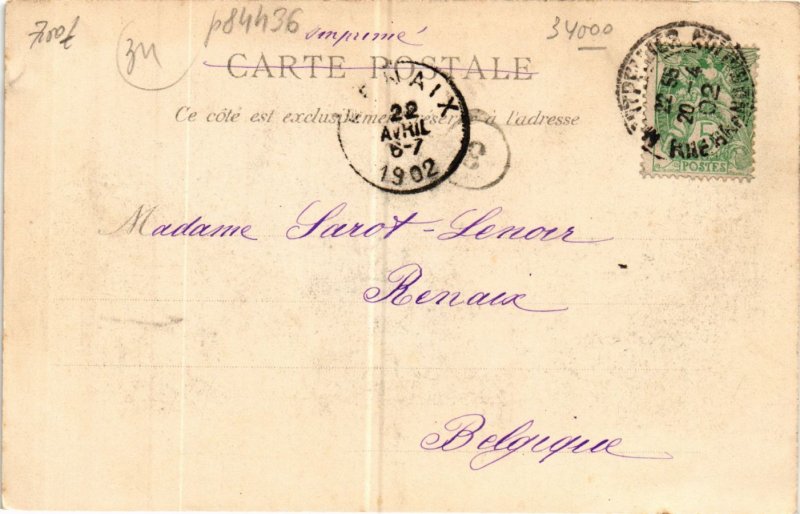 p84436
34000
34
imprimé
CARTE POSTALE
Ce côté est exclusivement réservé à l'adresse
RENAIX
22
AVRIL
6-7
1902
3
MONTPELLIER
20
02
5
POSTES
Madame Sarot-Lenoir
Renaix
Belgique